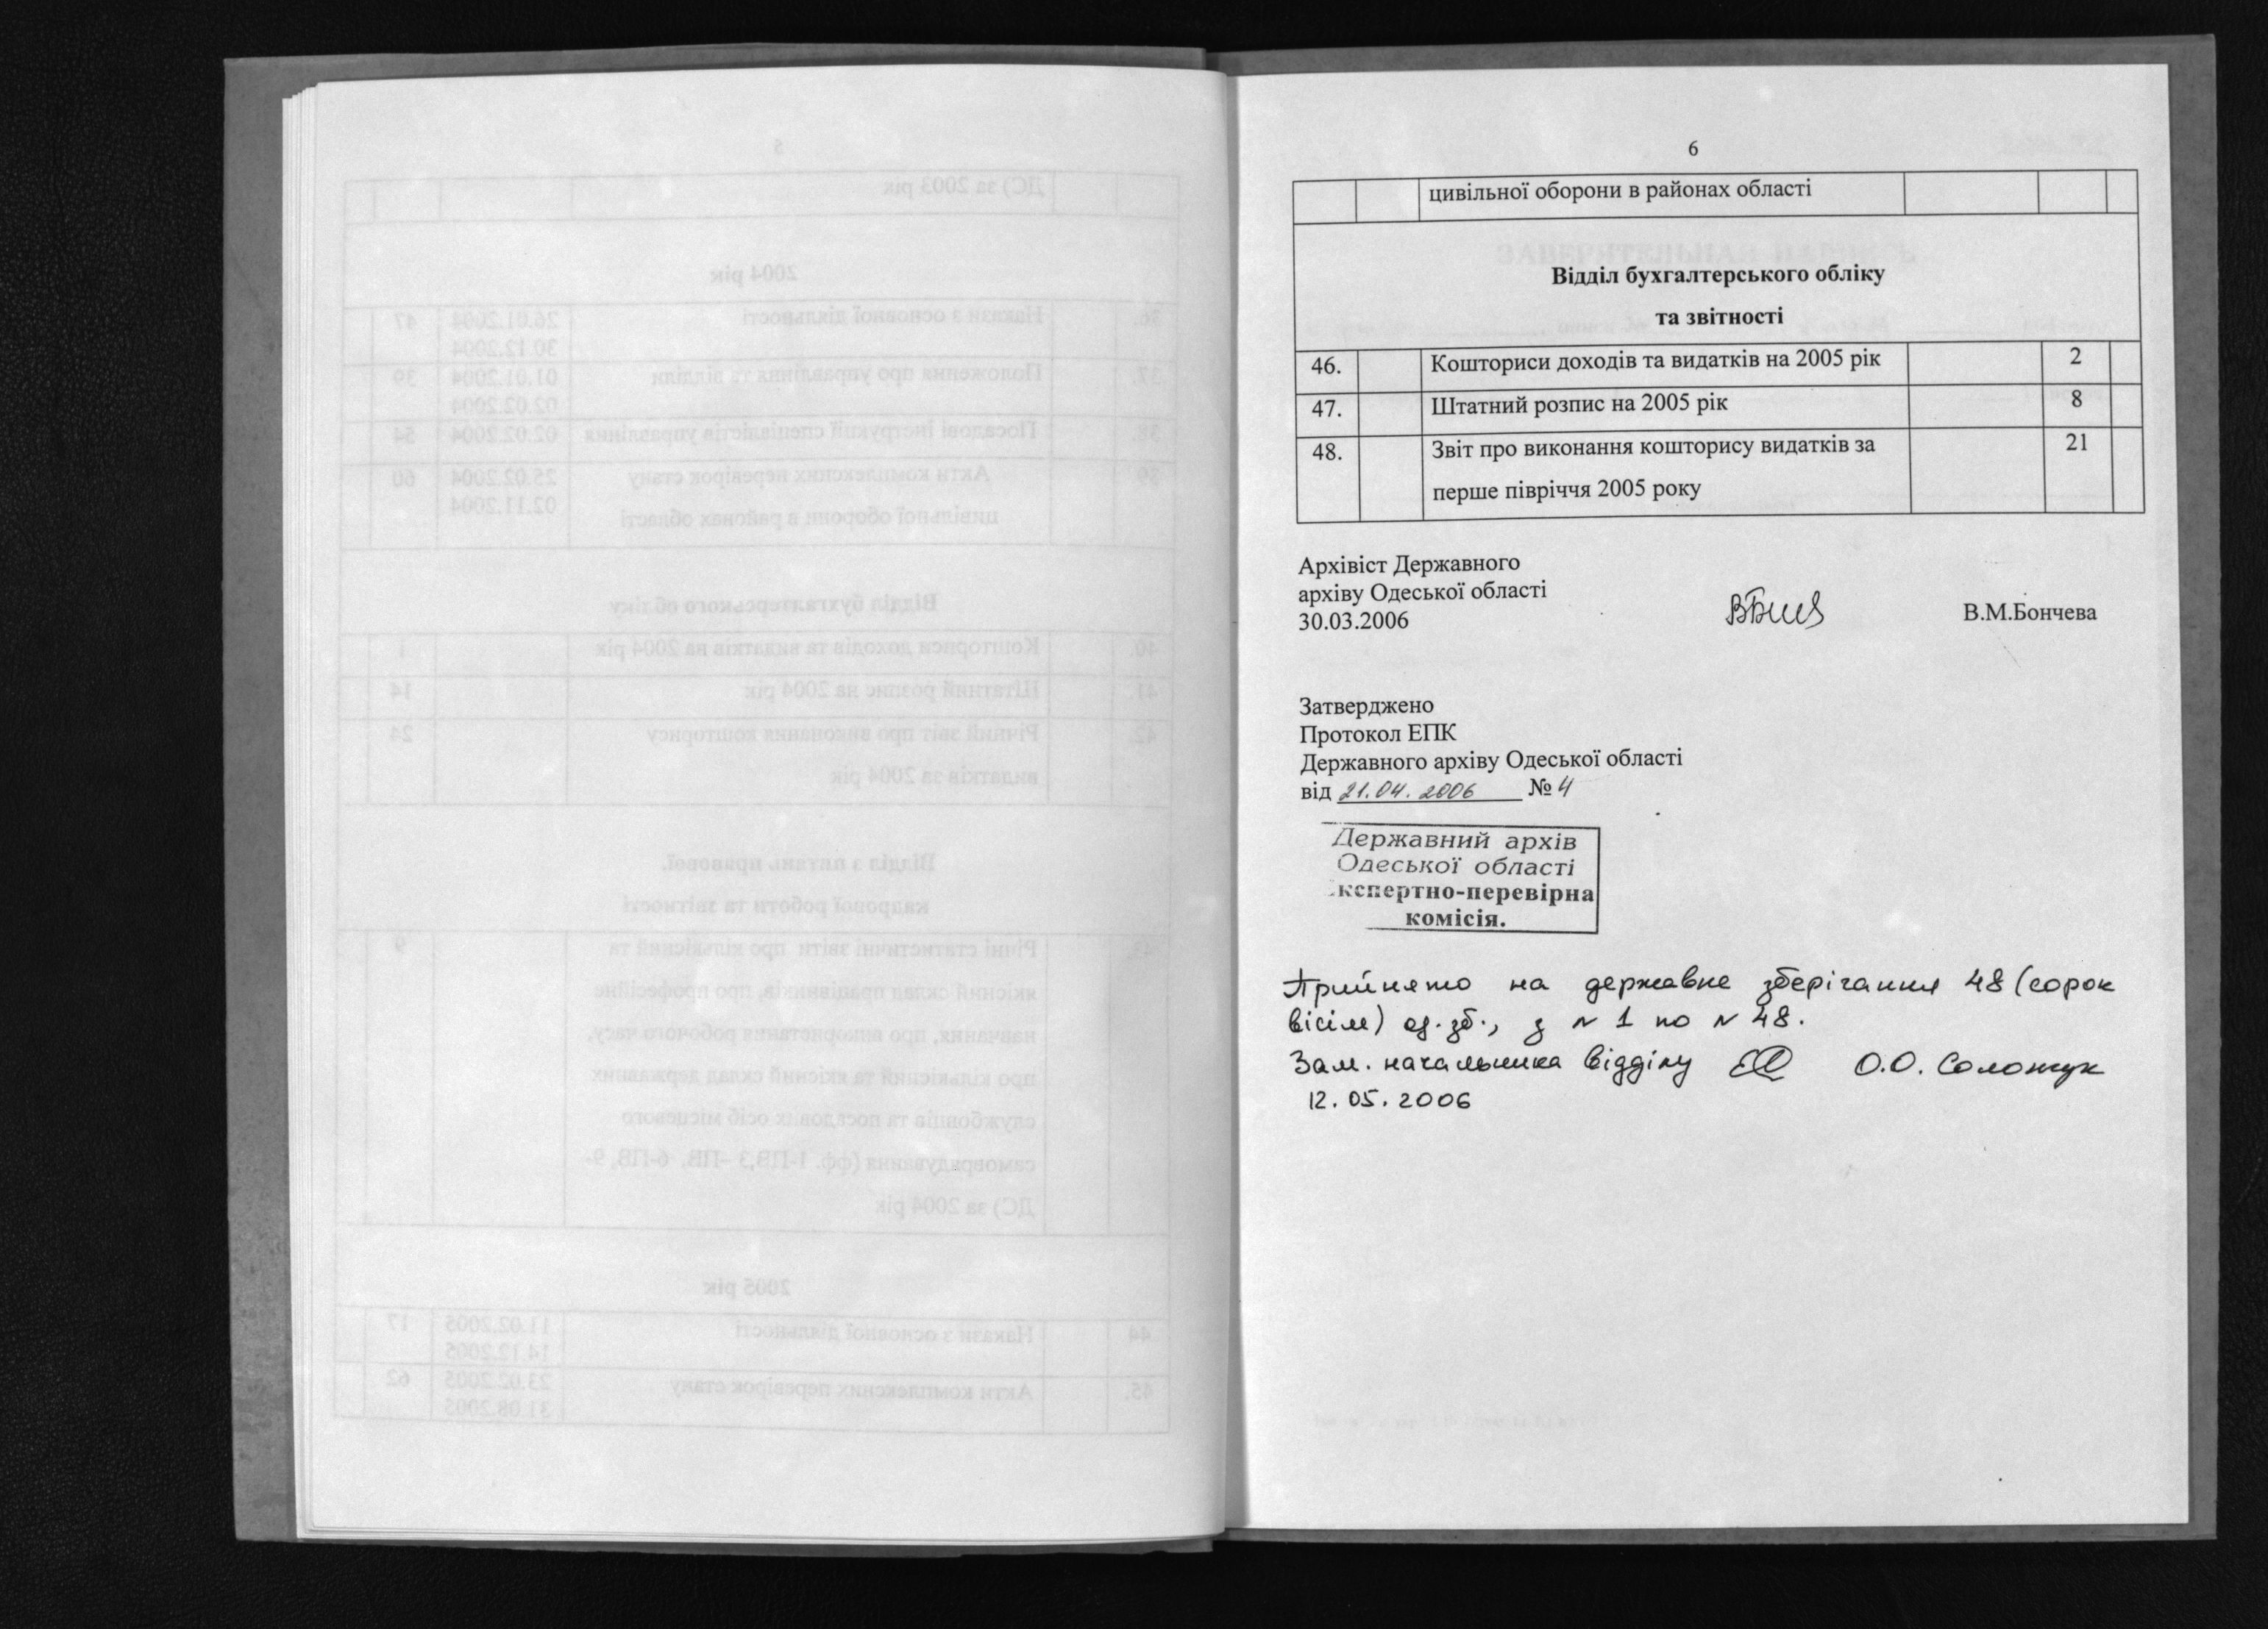 6
цивільної оборони в районах області
Відділ бухгалтерського обліку
та звітності
46. Кошториси доходів та видатків на 2005 рік 2
47. Штатний розпис на 2005 рік 8
48. Звіт про виконання кошторису видатків за 21
перше півріччя 2005 року
Архівіст Державного
архіву Одеської області
30.03.2006 В.М.Бончева
Затверджено
Протокол ЕПК
Державного архіву Одеської області
від 21.04.2006 № 4
Державний архів
Одеської області
кспертно-перевірна
комісія.
Прийнято на державне зберігання 48 (сорок
вісім) од. зб., з № 1 по № 48.
Зам. начальника відділу О.О.
12.05.2006